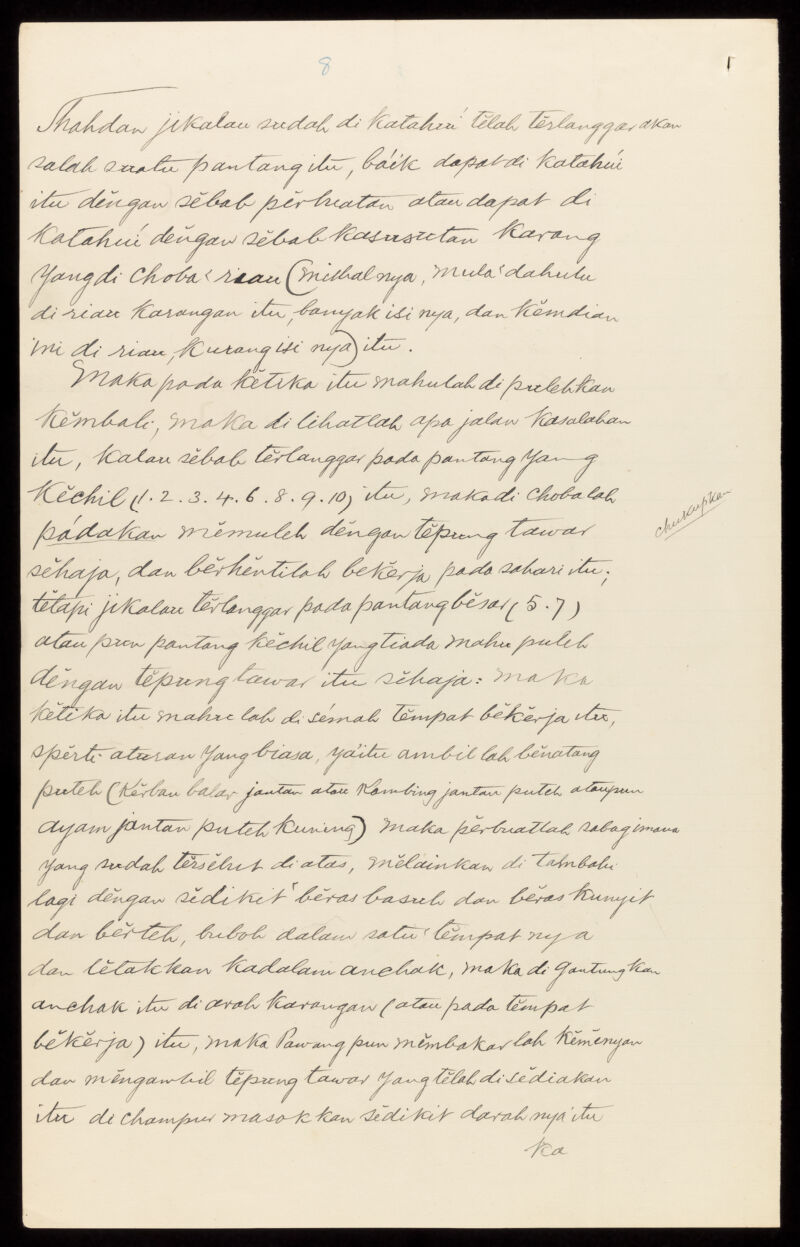 8
1
Shahdan jikalau sudah di katahui tĕlah tĕrlanggar akan
salah suatu pantang itu, báik dapat di katahúi
itu dĕngan sĕbab pĕrbuatan atau dapat di
katahúi dĕngan sĕbab kasusutan karang
yang di choba' riau (misthal nya, mula' dahulu
di riau karangan itu, banyak isi nya, dan kĕmdian
ini di riau, kurang isi nya) itu.
Maka pada kĕtika itu mahulah di pulehkan
kĕmbali, maka di lihatlah apa jalan kasalahan
itu, kalau sĕbab tĕrlanggar pada pantang yang
kĕchil (1. 2. 3. 4. 6. 8. 9. 10) itu, maka di choba lah
pádakan mĕmuleh dĕngan tĕpung tawar
chukupkan
sĕhaja, dan bĕrhĕntilah bekĕrja pada sahari itu;
tĕtapi jikalau tĕrlanggar pada pantang bĕsar (5. 7)
atau pun pantang kĕchil yang tiada mahu puleh
dĕngan tĕpung tawar itu sĕhaja: maka
kĕtika itu mahu lah di sémah tĕmpat bĕkĕrja itu,
spĕrti aturan yang biasa, yáitu ambil lah bĕnatang
puteh (kĕrbau balar jantan atau kambing jantan puteh ataupun
ayam jantan puteh kuning) maka pĕrbuatlah sabagimana
yang sudah tĕrsĕbut di atas, mĕlainkan di tambahi
lagi dĕngan sĕdikit' bĕras basuh dan bĕras kunyit
dan bĕrteh, buboh dalam satu' tĕmpat nya
dan lĕtakkan kadalam anchak, maka di gantungkan
anchak itu di arah karangan (atau pada tĕmpat
bĕkĕrja) itu, maka Pawang pun mĕmbakar lah kĕmĕnyan
dan mĕngambil tĕpung tawar yang tĕlah di sĕdiakan
itu di champur masokkan sĕdikit darah nya itu
ka